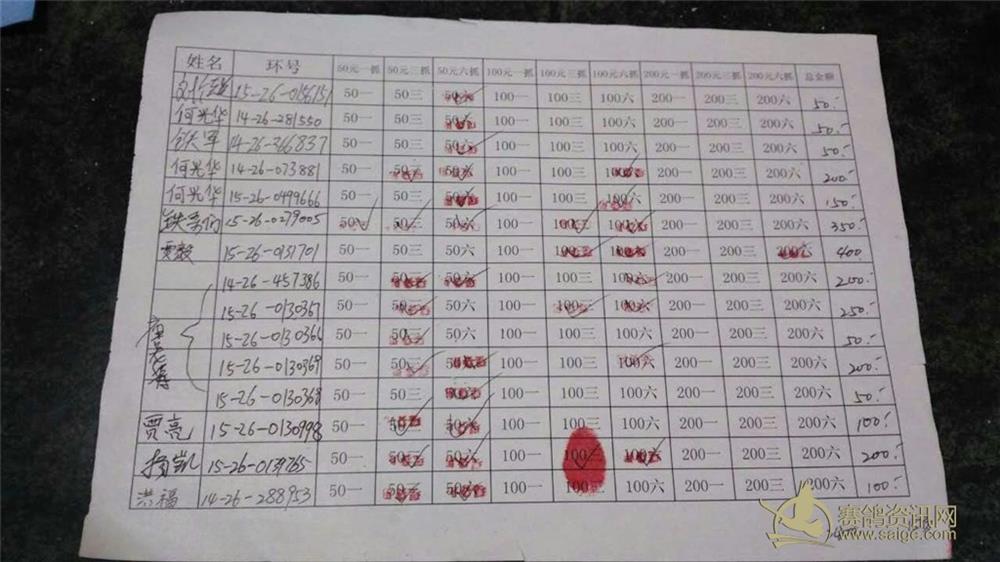 姓名 环号 50元一抓 50元三抓 50元六抓 100元一抓 100元三抓 100元六抓 200元一抓 200元三抓 200元六抓 总金额
15-26-0156151 50一 50三 50六 100一 100三 100六 200一 200三 200六 50.-
何光华 14-26-281550 50一 50三 50六 100一 100三 100六 200一 200三 200六 50.-
14-26-366837 50一 50三 50六 100一 100三 100六 200一 200三 200六 50.-
何光华 14-26-073881 50一 50三 50六 100一 100三 100六 200一 200三 200六 200.-
何光华 15-26-0499666 50一 50三 50六 100一 100三 100六 200一 200三 200六 150.-
15-26-0277005 50一 50三 50六 100一 100三 100六 200一 200三 200六 350.-
贾毅 15-26-0131701 50一 50三 50六 100一 100三 100六 200一 200三 200六 400
14-26-457386 50一 50三 50六 100一 100三 100六 200一 200三 200六 200.-
15-26-0130367 50一 50三 50六 100一 100三 100六 200一 200三 200六 250.-
15-26-0130366 50一 50三 50六 100一 100三 100六 200一 200三 200六 50.-
15-26-0130369 50一 50三 50六 100一 100三 100六 200一 200三 200六 200.-
15-26-0130368 50一 50三 50六 100一 100三 100六 200一 200三 200六 50.-
贾亮 15-26-0130998 50一 50三 50六 100一 100三 100六 200一 200三 200六 100.-
杨凯 15-26-0139765 50一 50三 50六 100一 100三 100六 200一 200三 200六 200.-
洪福 14-26-288953 50一 50三 50六 100一 100三 100六 200一 200三 200六 100.-
赛鸽资讯网
www.saige.com